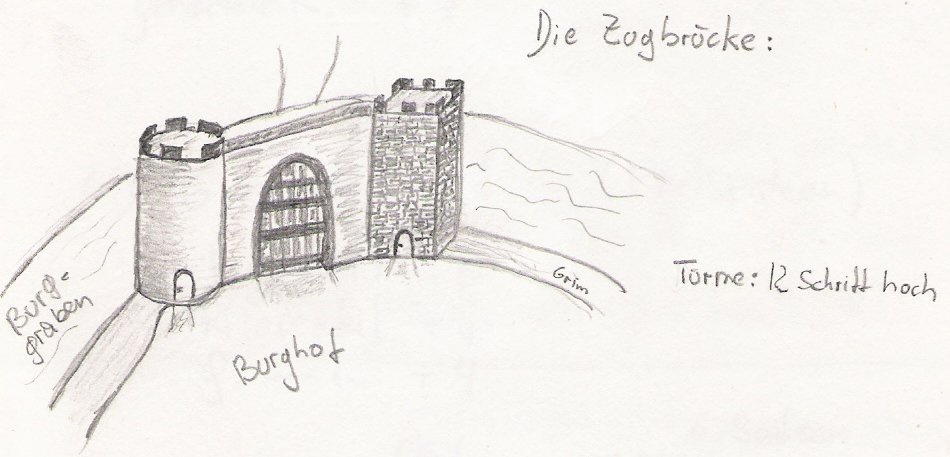 Die Zugbrücke:
Türme: 12 Schritt hoch
Grim
Burg-
graben
Burghof